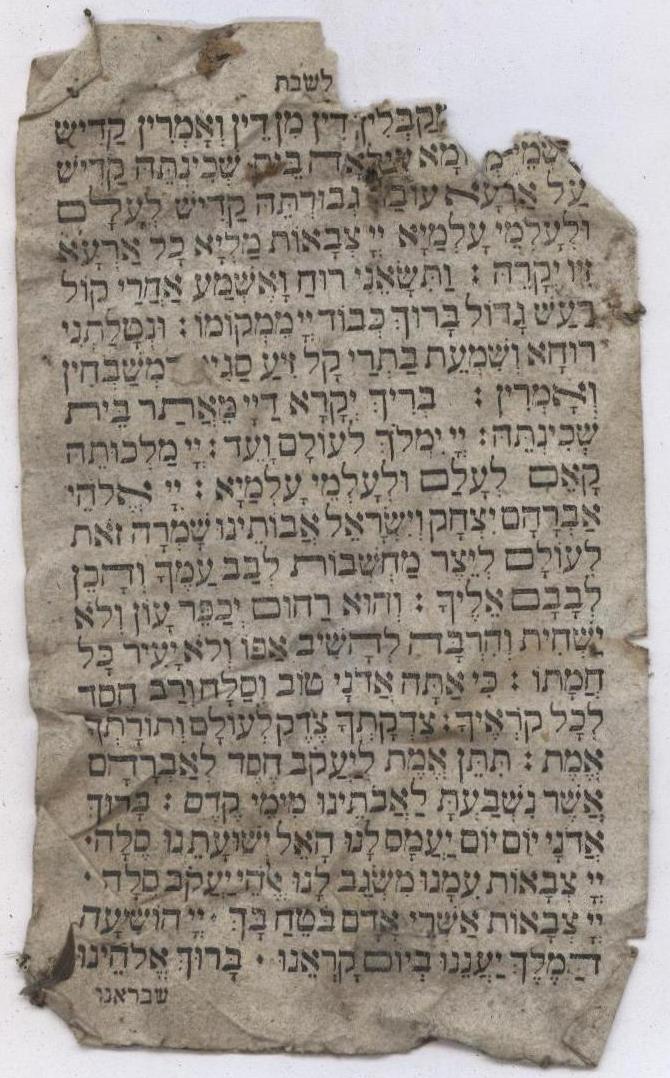 לשבת
מְקַבְּלִין דֵּין מִן דֵּין וְאָמְרִין קַדִּישׁ
בִּשְׁמֵי מְרוֹמָא עִילָּאָה בֵּית שְׁכִינְתֵּהּ קַדִּישׁ
עַל אַרְעָא עוֹבַד גְּבוּרְתֵּהּ קַדִּישׁ לְעָלַם
וּלְעָלְמֵי עָלְמַיָּא יְיָ צְבָאוֹת מַלְיָא כָל אַרְעָא
זִיו יְקָרֵהּ : וַתִּשָּׂאֵנִי רוּחַ וָאֶשְׁמַע אַחֲרַי קוֹל
רַעַשׁ גָּדוֹל בָּרוּךְ כְּבוֹד יְיָ מִמְּקוֹמוֹ : וּנְטָלַתְנִי
רוּחָא וְשִׁמְעֵת בַּתְרַי קָל זִיעַ סַגִּי דִּמְשַׁבְּחִין
וְאָמְרִין : בְּרִיךְ יְקָרָא דַיְיָ מֵאֲתַר בֵּית
שְׁכִינְתֵּהּ : יְיָ יִמְלֹךְ לְעוֹלָם וָעֶד : יְיָ מַלְכוּתֵהּ
קָאֵם לְעָלַם וּלְעָלְמֵי עָלְמַיָּא : יְיָ אֱלֹהֵי
אַבְרָהָם יִצְחָק וְיִשְׂרָאֵל אֲבוֹתֵינוּ שָׁמְרָה זֹאת
לְעוֹלָם לְיֵצֶר מַחְשְׁבוֹת לְבַב עַמֶּךָ וְהָכֵן
לְבָבָם אֵלֶיךָ : וְהוּא רַחוּם יְכַפֵּר עָוֹן וְלֹא
יַשְׁחִית וְהִרְבָּה לְהָשִׁיב אַפּוֹ וְלֹא יָעִיר כָּל
חֲמָתוֹ : כִּי אַתָּה אֲדֹנָי טוֹב וְסַלָּח וְרַב חֶסֶד
לְכָל קוֹרְאֶיךָ : צִדְקָתְךָ צֶדֶק לְעוֹלָם וְתוֹרָתְךָ
אֱמֶת : תִּתֵּן אֱמֶת לְיַעֲקֹב חֶסֶד לְאַבְרָהָם
אֲשֶׁר נִשְׁבַּעְתָּ לַאֲבֹתֵינוּ מִימֵי קֶדֶם : בָּרוּךְ
אֲדֹנָי יוֹם יוֹם יַעֲמָס לָנוּ הָאֵל יְשׁוּעָתֵנוּ סֶלָה ·
יְיָ צְבָאוֹת עִמָּנוּ מִשְׂגָּב לָנוּ אֱהֵי יַעֲקֹב סֶלָה ·
יְיָ צְבָאוֹת אַשְׁרֵי אָדָם בֹּטֵחַ בָּךְ · יְיָ הוֹשִׁיעָה
הַמֶּלֶךְ יַעֲנֵנוּ בְיוֹם קָרְאֵנוּ · בָּרוּךְ אֱלֹהֵינוּ
שבראנו